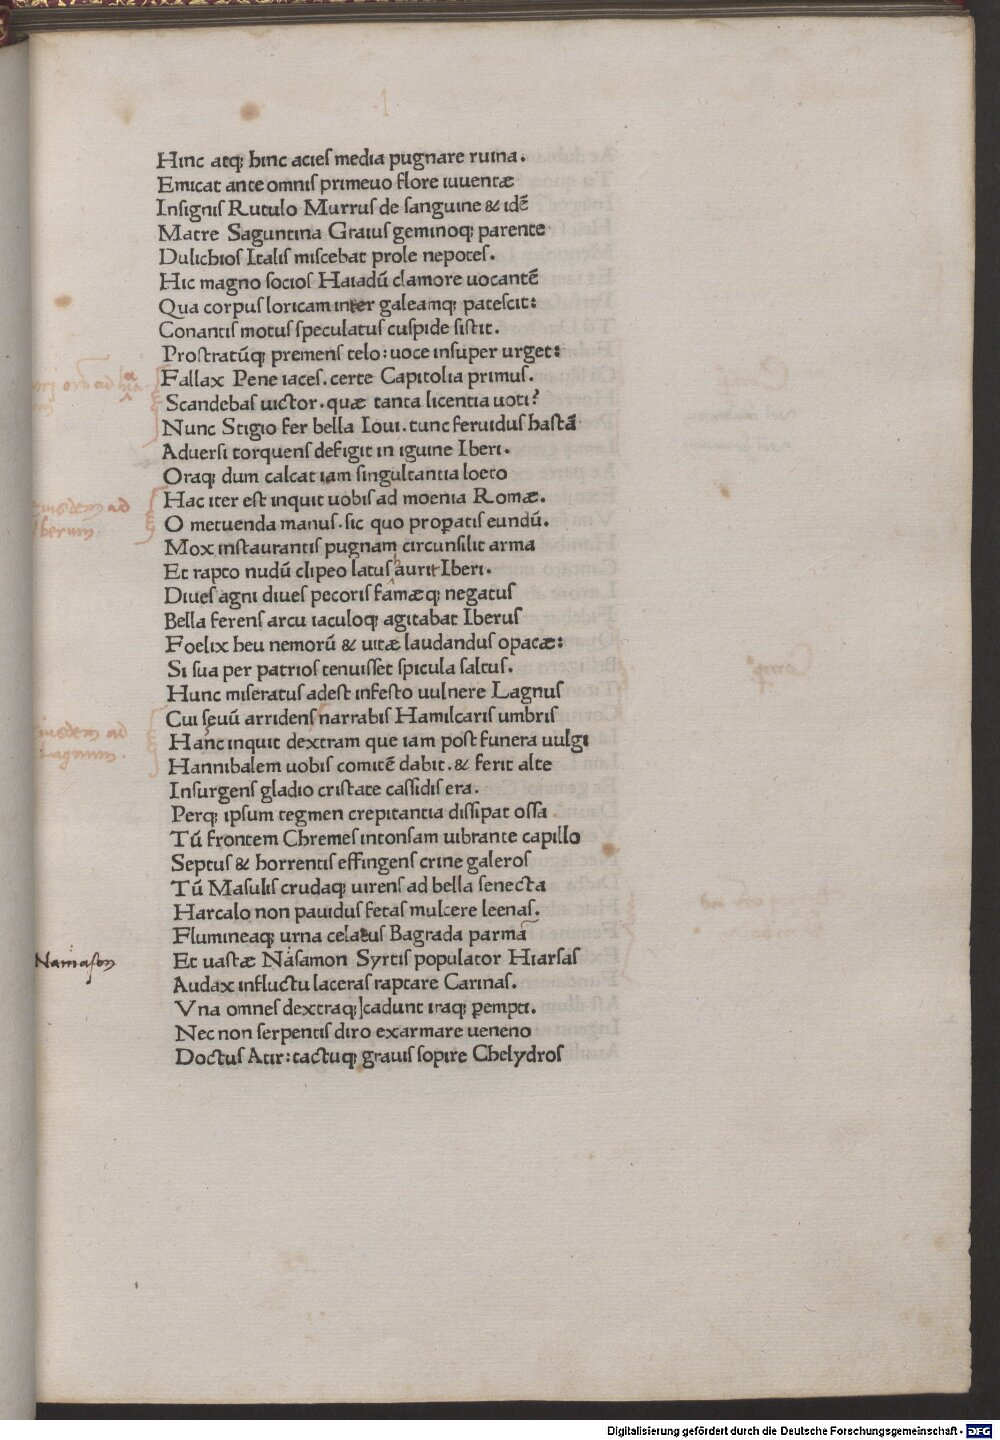 Hinc atq; hinc acieſ media pugnare ruina.
Emicat ante omniſ primeuo flore iuuentæ
Inſigniſ Rutulo Murruſ de ſanguine & idē
Matre Saguntina Graiuſ geminoq; parente
Dulichioſ Italiſ miſcebat prole nepoteſ.
Hic magno ſocioſ Haiadū clamore uocantē
Qua corpuſ loricam inter galeamq; pateſcit:
Conantiſ motuſ ſpeculatuſ cuſpide ſiſtit.
Proſtratūq; premenſ telo: uoce inſuper urget:
Fallax Pene iaceſ. certe Capitolia primuſ.
Scandebaſ uictor. quæ tanta licentia uoti?
Nunc Stigio fer bella Ioui. tunc feruiduſ haſtā
Aduerſi torquenſ defigit in iguine Iberi.
Oraq; dum calcat iam ſingultantia loeto
eiusdem ad
Hac iter eſt inquit uobiſ ad moenia Romæ.
Iberum
O metuenda manuſ. ſic quo properatiſ eundū.
Mox inſtaurantiſ pugnam circunſilit arma
Et rapto nudū clipeo latuſ aurit Iberi.
Diueſ agni diueſ pecoriſ famæq; negatuſ
Bella ferenſ arcu iaculoq; agitabat Iberuſ
Foelix heu nemorū & uitæ laudanduſ opacæ:
Si ſua per patrioſ tenuiſſet ſpicula ſaltuſ.
Hunc miſeratuſ adeſt infeſto uulnere Lagnuſ
Cui ſeuū arridenſ narrabiſ Hamilcariſ umbriſ
eiusdem ad
Hanc inquit dextram que iam poſt funera uulgi
Lagnum.
Hannibalem uobiſ comitē dabit. & ferit alte
Inſurgenſ gladio criſtate caſſidiſ era.
Perq; ipſum tegmen crepitantia diſſipat oſſa
Tū frontem Chremeſ intonſam uibrante capillo
Septuſ & horrentiſ effingenſ crine galeroſ
Tū Maſuliſ crudaq; uirenſ ad bella ſenecta
Harcalo non pauiduſ fetaſ mulcere leenaſ.
Flumineaq; urna celatuſ Bagrada parmā
Namason
Et uaſtæ Naſamon Syrtiſ populator Hiarſaſ
Audax influctu laceraſ raptare Carinaſ.
Vna omneſ dextraq; cadunt iraq; perempti.
Nec non ſerpentiſ diro exarmare ueneno
Doctuſ Atir: tactuq; grauiſ ſopire Chelydroſ
Digitalisierung gefördert durch die Deutsche Forschungsgemeinschaft - DFG